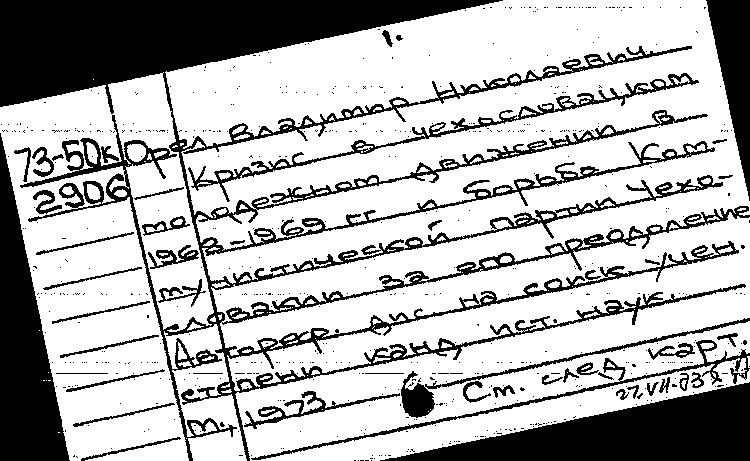 1.
73-50к Орел, Владимир Николаевич.
2906 Кризис в чехословацком
молодежном движении в
1968-1969 гг и борьба Ком-
мунистической партии Чехо-
словакии за его преодоление
Автореф. дис на соиск. учен.
степени канд ист. наук.
М., 1973.
См. след. карт.
27.VII-73